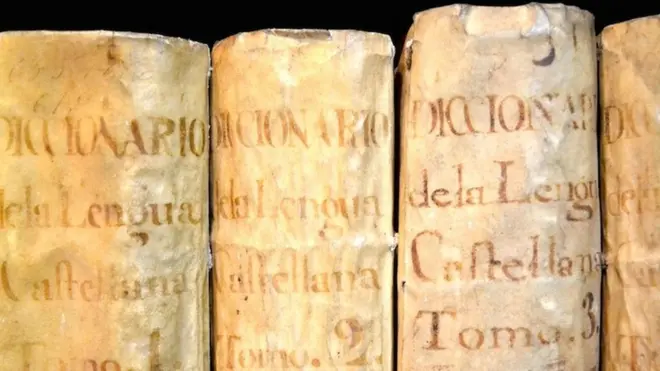 DICCIONARIO
dela Lengua
Castellana
Tomo. 1.
DICCIONARIO
dela Lengua
Castellana
Tomo. 2.
DICCIONARI
dela Lengu
Castellana
Tomo. 3.
DICC
Ca